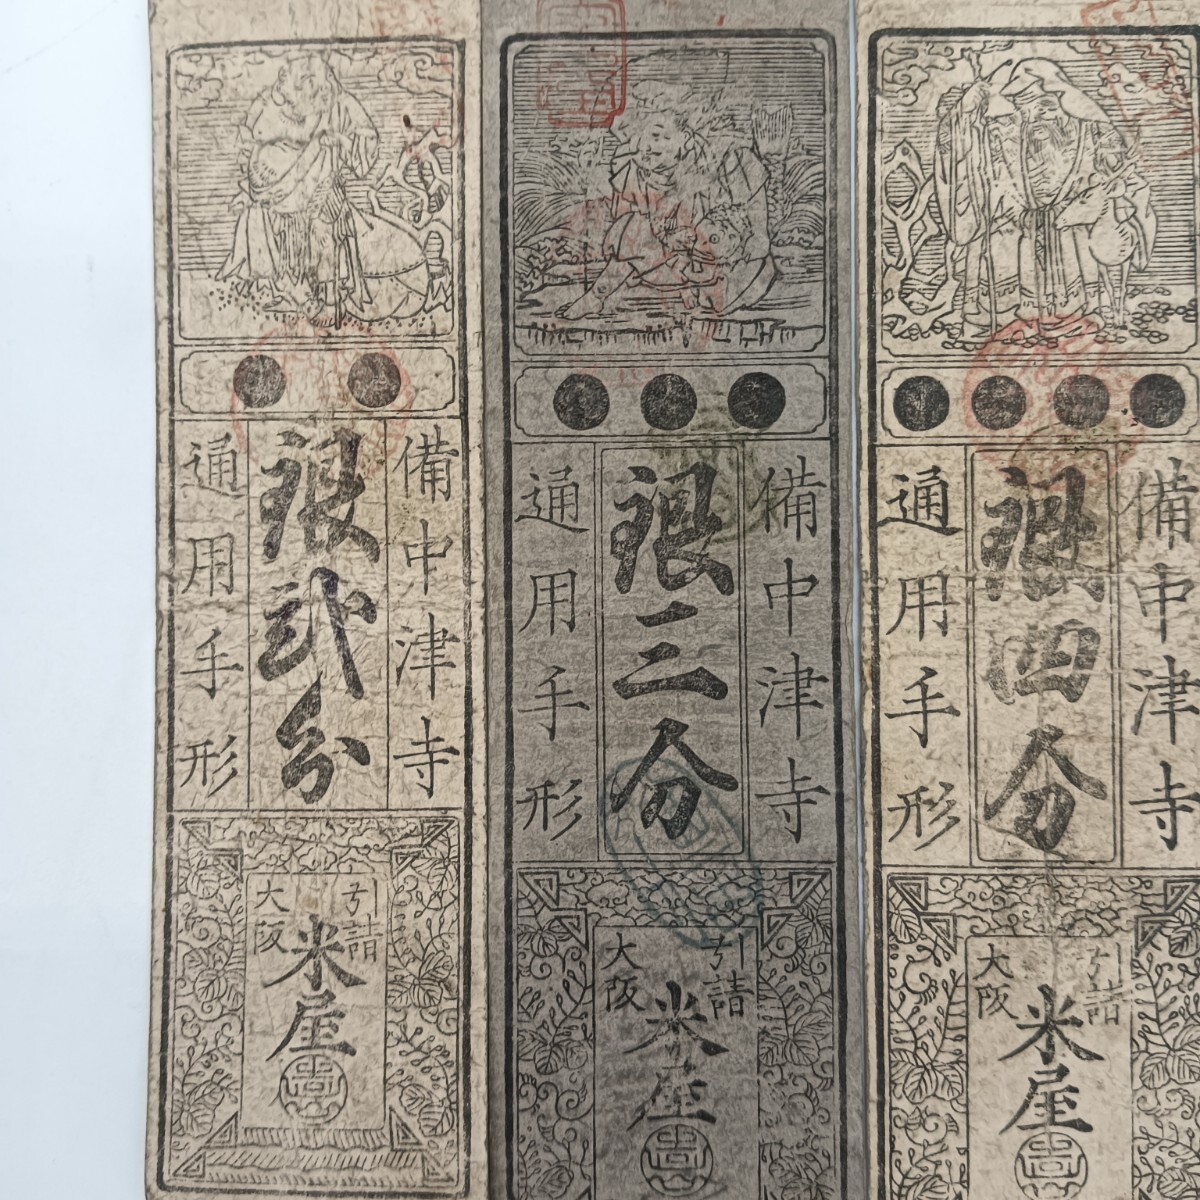 備中津寺
銀貳分
通用手形
引詰
大阪
米屋
備中津寺
銀三分
通用手形
引詰
大阪
米屋
備中津寺
銀四分
通用手形
引詰
大阪
米屋